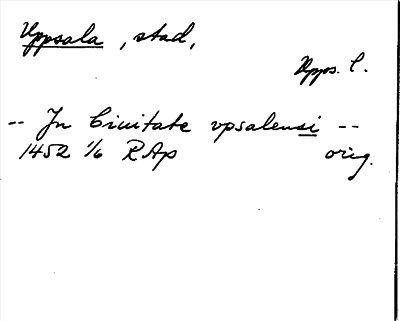 Uppsala, stad,
Upps. l.
-- In Ciuitate vpsalensi --
1452 1/6 RAp orig.